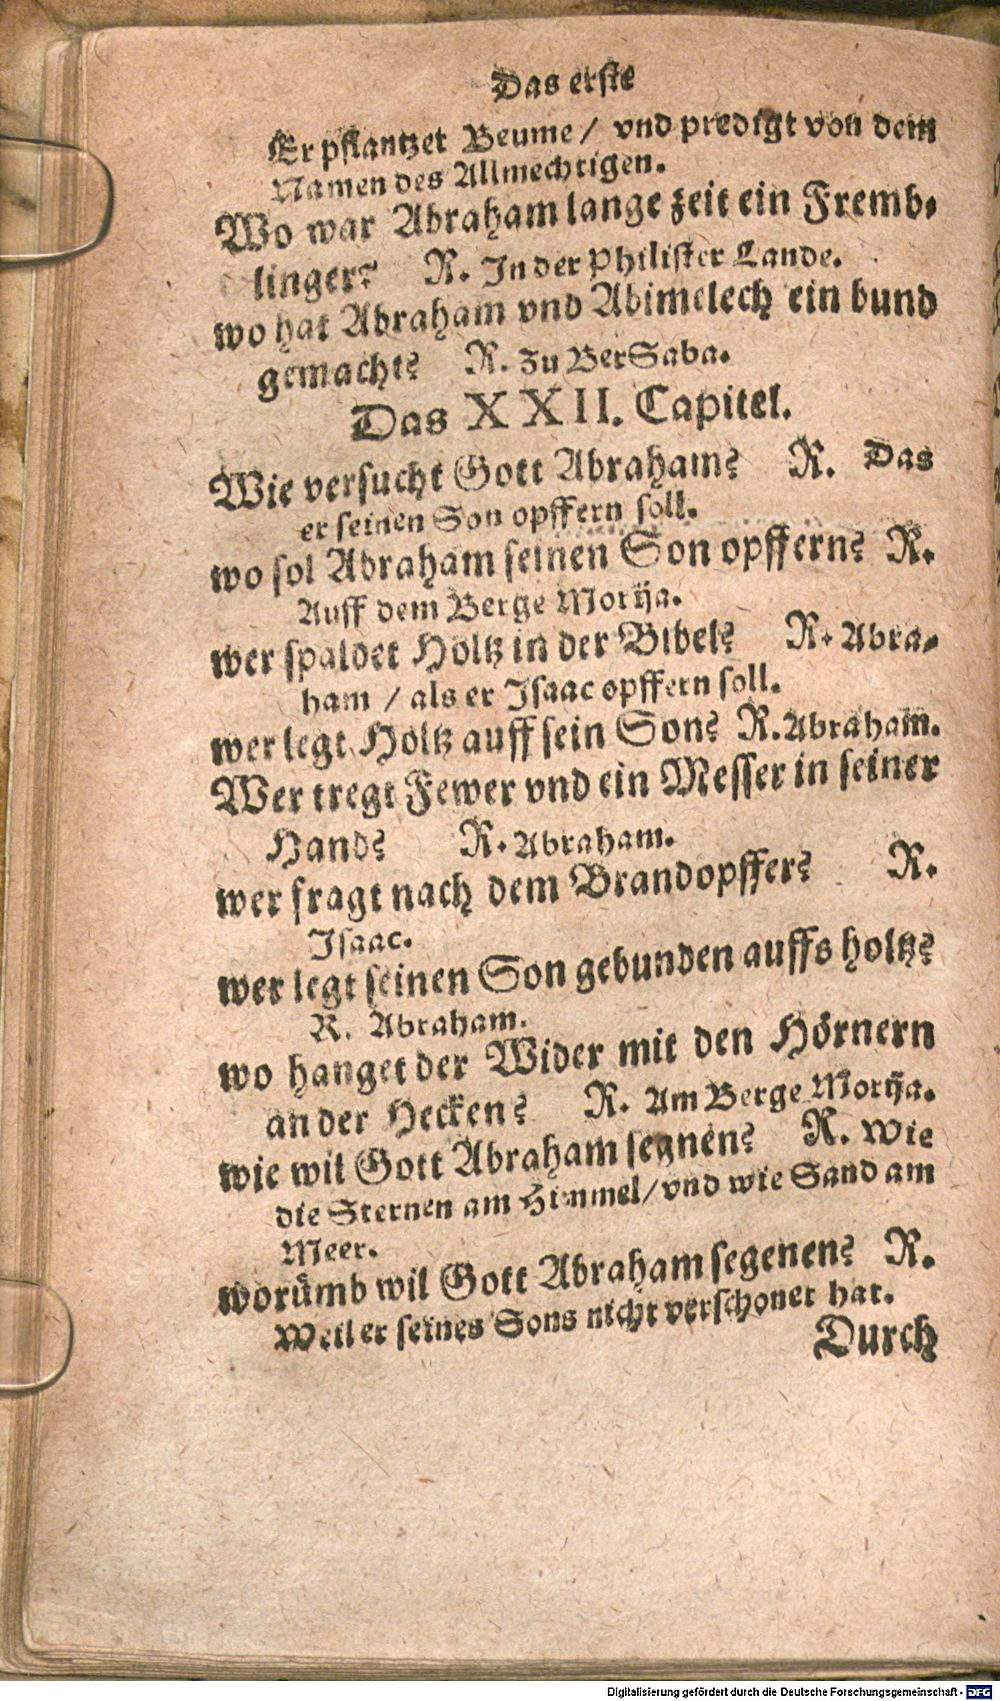 Das erste
Er pflantzet Beume / vnd predigt von dem
Namen des Allmechtigen.
Wo war Abraham lange zeit ein Fremb⸗
linger? R. In der Philister Lande.
wo hat Abraham vnd Abimelech ein bund
gemacht? R. zu BerSaba.
Das XXII. Capitel.
Wie versucht Gott Abraham? R. Das
er seinen Son opffern soll.
wo sol Abraham seinen Son opffern? R.
Auff dem Berge Morija.
wer spaldet Holtz in der Bibel? R. Abra⸗
ham / als er Isaac opffern soll.
wer legt Holtz auff sein Son? R. Abraham.
Wer tregt Fewer vnd ein Messer in seiner
Hand? R. Abraham.
wer fragt nach dem Brandopffer? R.
Isaac.
wer legt seinen Son gebunden auffs holtz?
R. Abraham.
wo hanget der Wider mit den Hörnern
an der Hecken? R. Am Berge Morija.
wie wil Gott Abraham segnen? R. Wie
die Sternen am Himmel / vnd wie Sand am
Meer.
worümb wil Gott Abraham segenen? R.
Weil er seines Sons nicht verschonet hat.
Durch
Digitalisierung gefördert durch die Deutsche Forschungsgemeinschaft - DFG